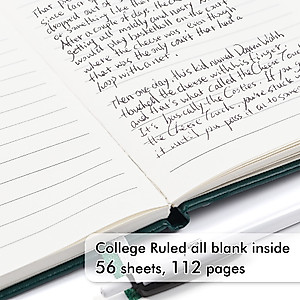 dropped out of
or something like that.
After a couple of days, the cheese
getting all moldy and nasty
would play basketball on
where the cheese was even though
was the only court that had a
hoop with a net.
Then one day this kid named Darren Walsh
touched the cheese with his finger,
and that's what called the Cheese Touch
It's basically the Cooties. If you
the Cheese Touch, you're stuck
it until you pass it on to some
College Ruled all blank inside
56 sheets, 112 pages